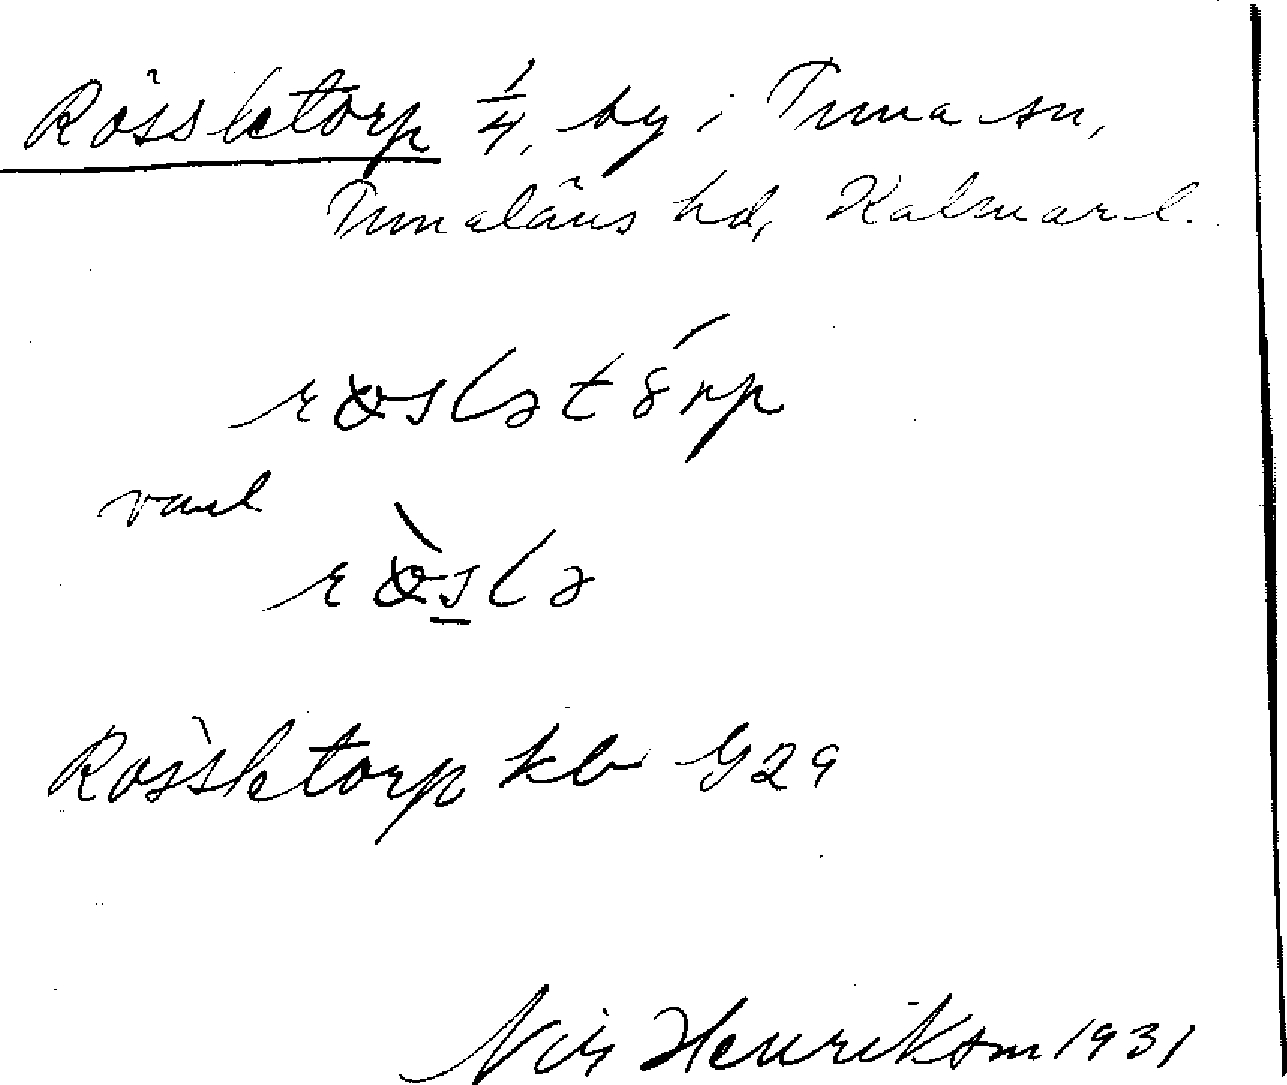 Rössletorp 1/4, by i Tuna sn,
Tunaläns hd, Kalmar l.
vard
Rössletorp kb G29
Nils Henrikson 1931